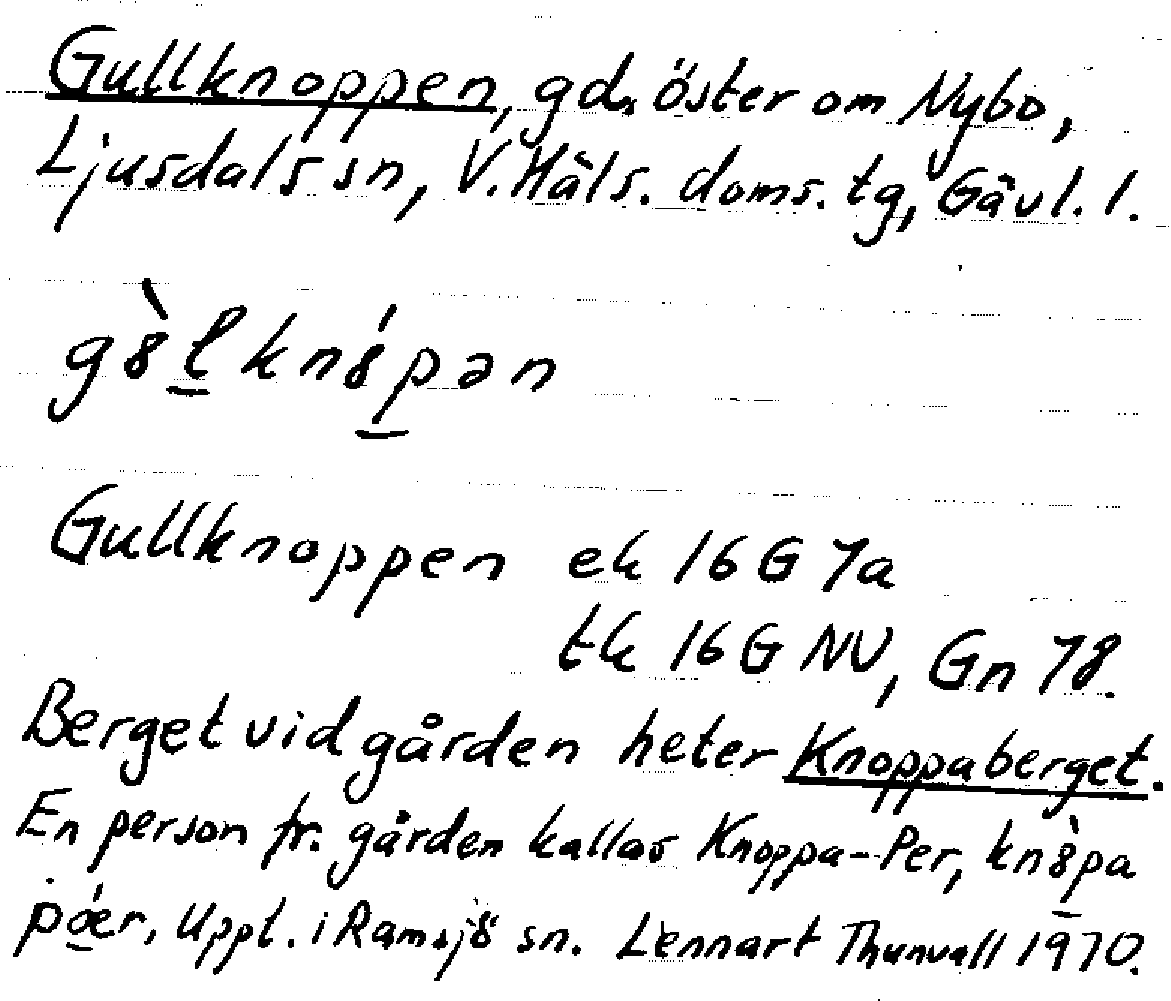 Gullknoppen, gd, öster om Nybo,
Ljusdals sn, V. Häls. doms. tg, Gävl. l.
gὸ̀l̠knȣ́p̠ən
Gullknoppen ek 16 G 7a
tk 16 G NV, Gn 78.
Berget vid gården heter Knoppaberget.
En person fr. gården kallas Knoppa-Per, knȣ̀p̠a
pǽ̠r, Uppt. i Ramsjö sn. Lennart Thunvall 1970.